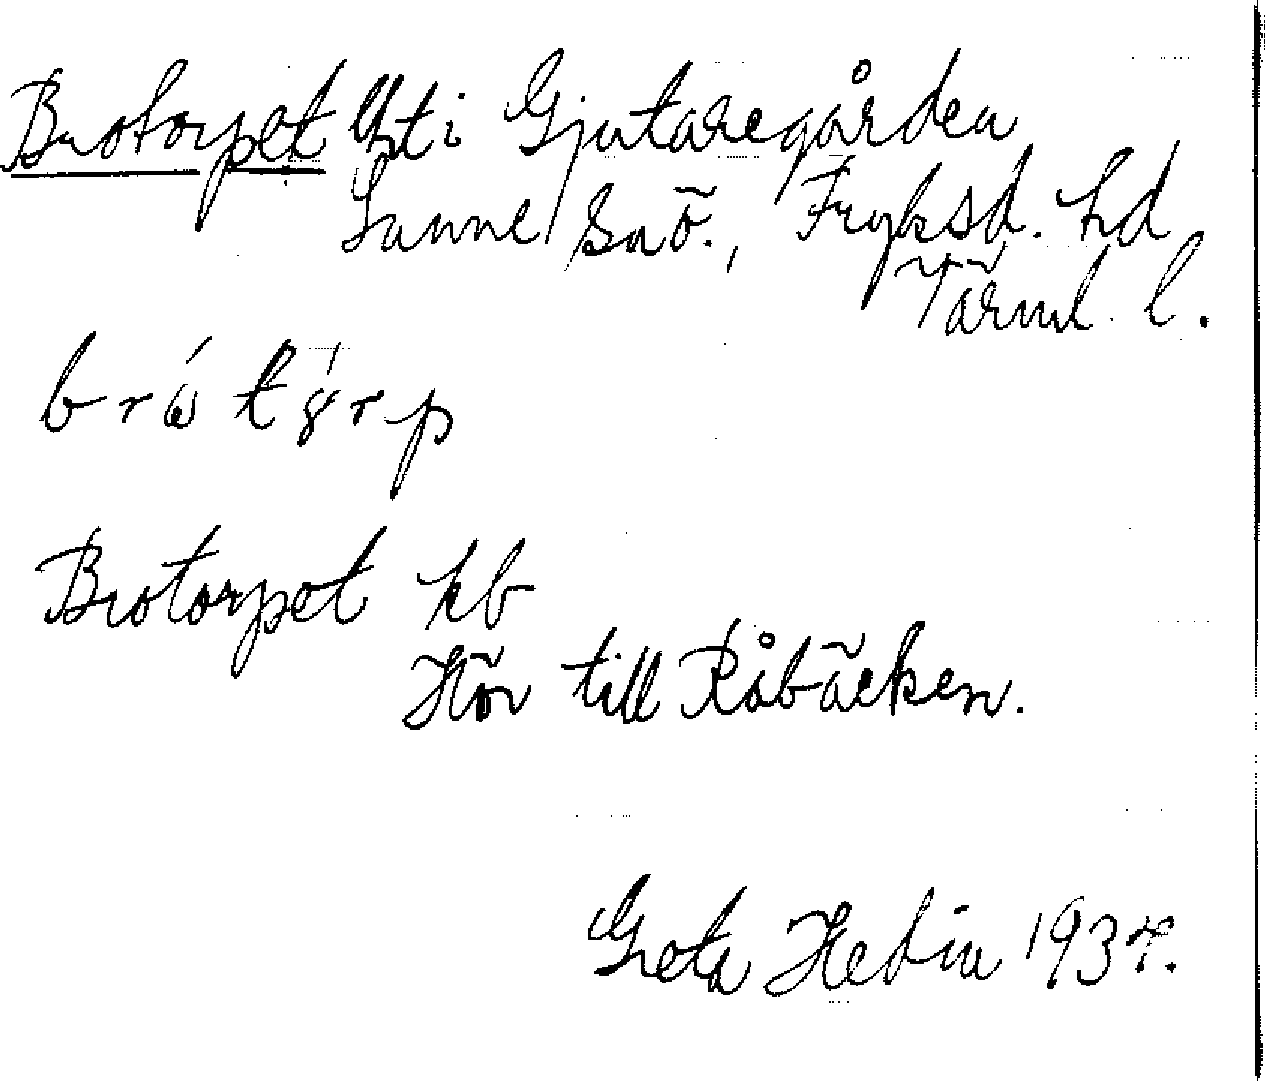 Brotorpet Lht i Gjutaregården
Sunne sn ö., Fryksd. hd
Värml. l.
b r ώ t ɣ́ r p
Brotorpet kb
Hör till Råbäcken.
Greta Hedin 1937.